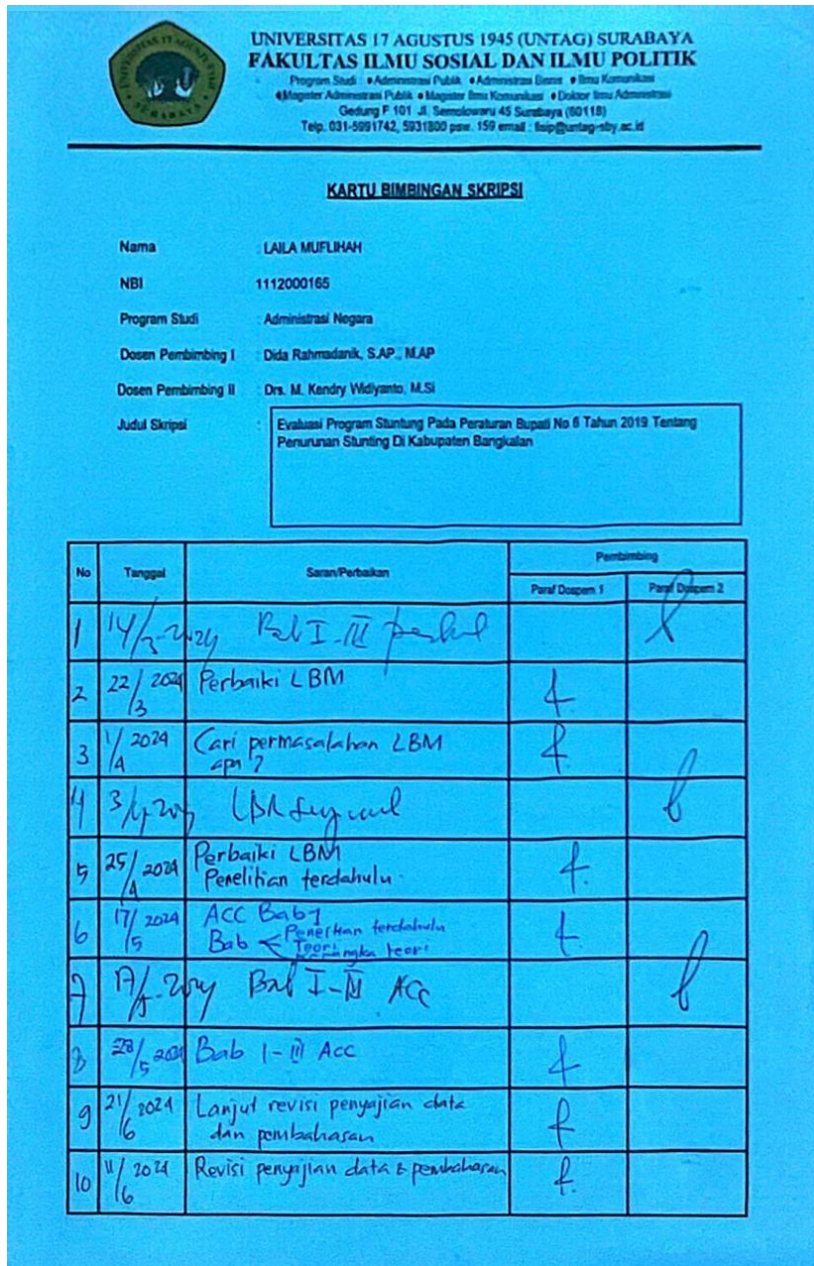 UNIVERSITAS 17 AGUSTUS 1945
SURABAYA
UNIVERSITAS 17 AGUSTUS 1945 (UNTAG) SURABAYA
FAKULTAS ILMU SOSIAL DAN ILMU POLITIK
Program Studi : • Administrasi Publik • Administrasi Bisnis • Ilmu Komunikasi
• Magister Administrasi Publik • Magister Ilmu Komunikasi • Doktor Ilmu Administrasi
Gedung F 101 Jl. Semolowaru 45 Surabaya (60118)
Telp. 031-5991742, 5931800 psw. 159 email : fisip@untag-sby.ac.id
KARTU BIMBINGAN SKRIPSI
Nama : LAILA MUFLIHAH
NBI 1112000165
Program Studi : Administrasi Negara
Dosen Pembimbing I : Dida Rahmadanik, S.AP., M.AP
Dosen Pembimbing II : Drs. M. Kendry Widiyanto, M.Si
Judul Skripsi : Evaluasi Program Stuntung Pada Peraturan Bupati No 6 Tahun 2019 Tentang
Penurunan Stunting Di Kabupaten Bangkalan
No Tanggal Saran/Perbaikan Pembimbing
Paraf Dospem 1 Paraf Dospem 2
1 14/3-2024 Bab I-III
2 22/3 2024 Perbaiki LBM
3 1/4 2024 Cari permasalahan LBM
apa ?
4 3/4 204
5 25/4 2024 Perbaiki LBM
Penelitian terdahulu
6 17/5 2024 ACC Bab 1
Bab < Penelitian terdahulu
Teori
Kerangka teori
7 17/5-2024 Bab I-III ACC
8 28/5 2024 Bab I-III Acc
9 21/6 2024 Lanjut revisi penyajian data
dan pembahasan
10 11/6 2024 Revisi penyajian data & pembahasan